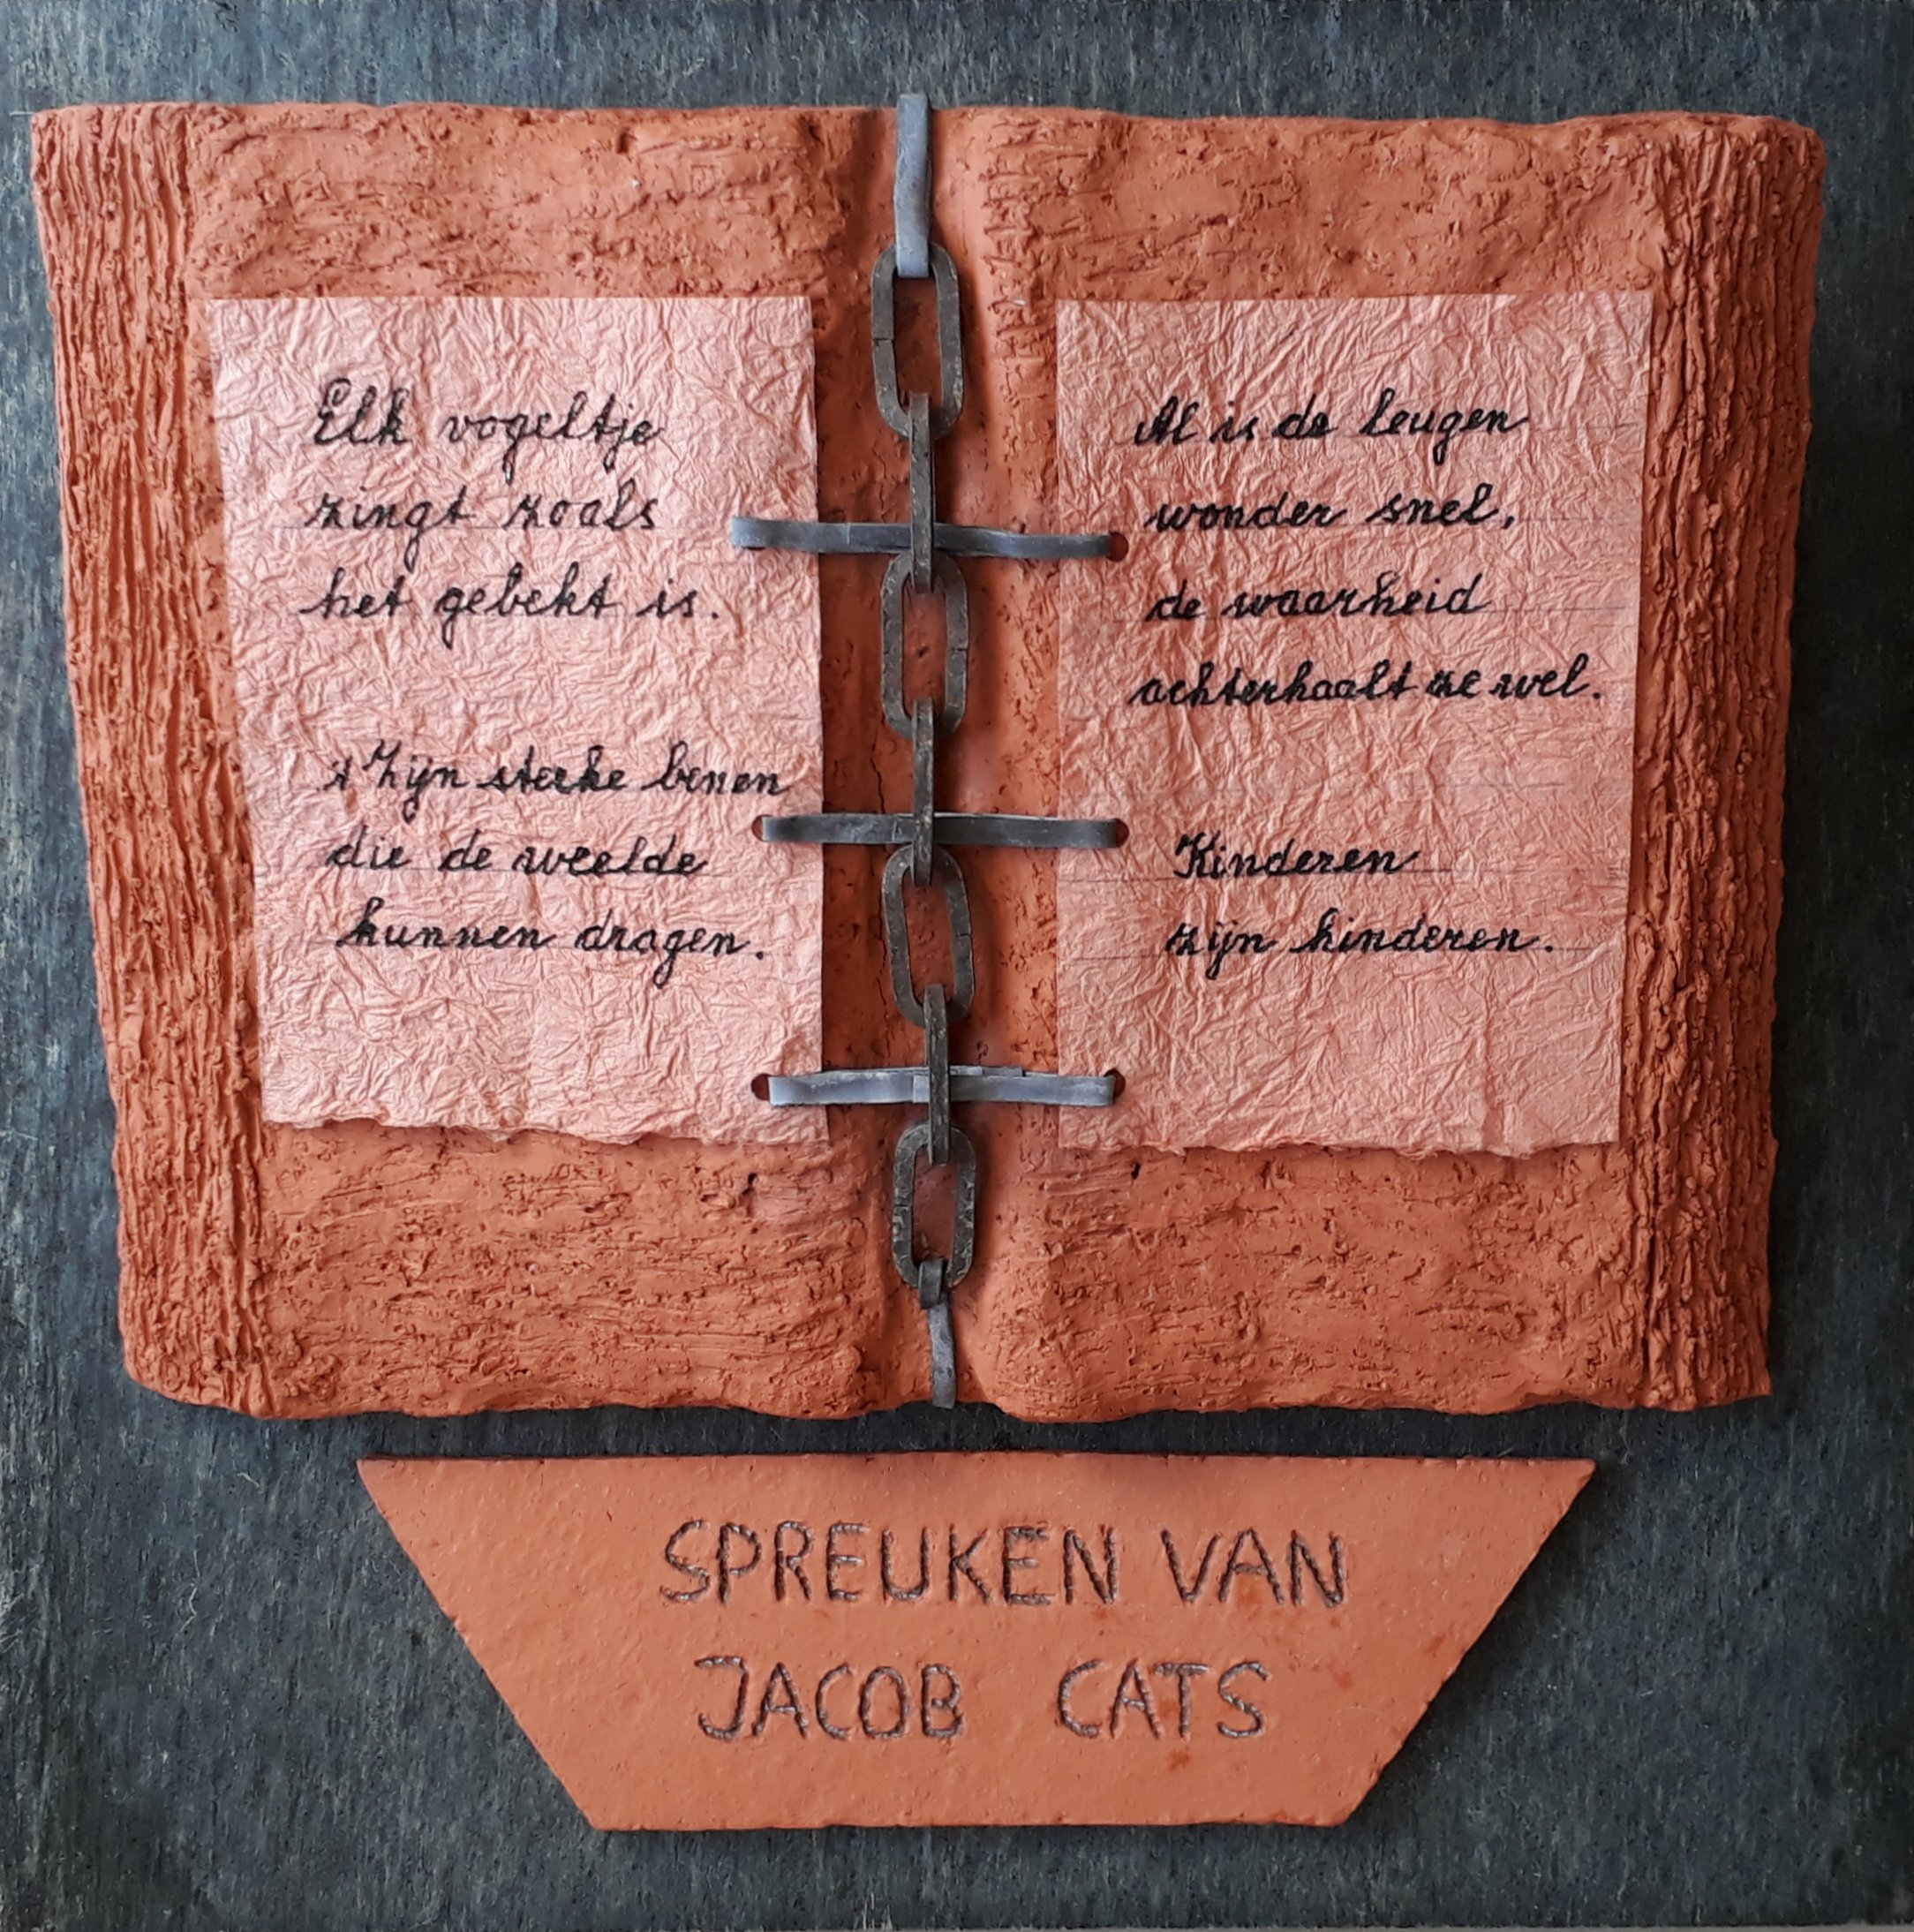 Elk vogeltje
zingt zoals
het gebekt is.
't Zijn sterke benen
die de weelde
kunnen dragen.
Al is de leugen
wonder snel,
de waarheid
achterhaalt ze wel.
Kinderen
zijn kinderen.
SPREUKEN VAN
JACOB CATS